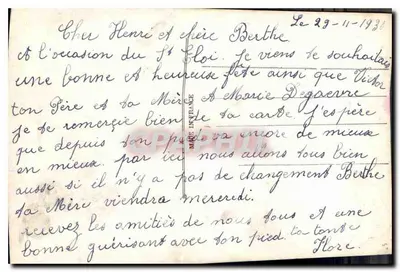 Le 29-11-193
Cher Henri et chère Berthe
A l'occasion du St Eloi. Je viens te souhaiter
une bonne et heureuse fête ainsi que Victor
ton Père et ta Mère et Marie Degaevre
Je te remercie bien de ta carte j'espère
que depuis ton pied va encore de mieux
en mieux. par ici nous allons tous bien
aussi si il n'y a pas de changement Berthe
ta Mère viendra mercredi.
recevez les amitiés de nous tous et une
bonne guérison avec ton pied ta tante
Flore.
MADE IN FRANCE